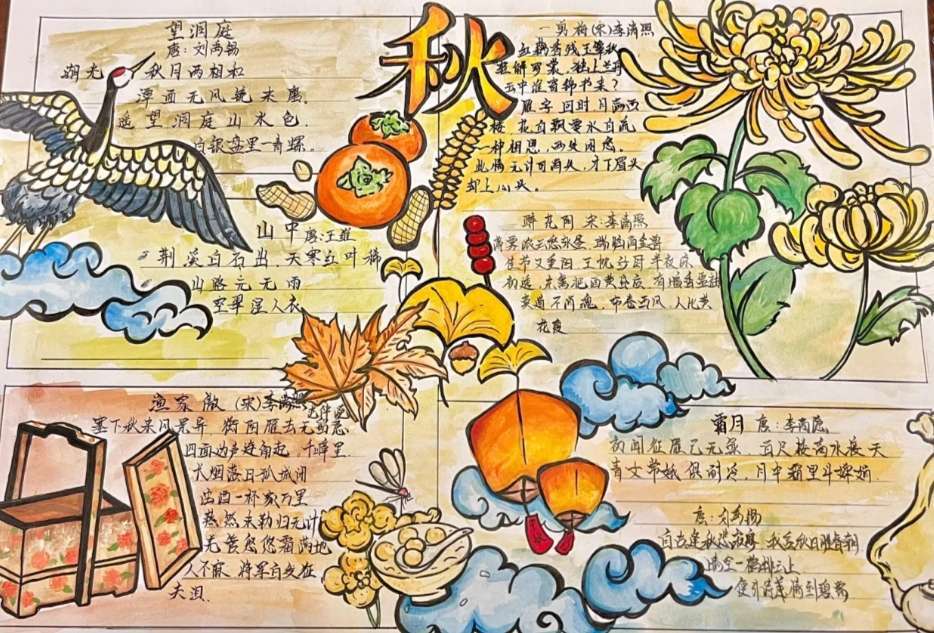 秋
望洞庭
唐:刘禹锡
湖光 秋月两相和
潭面无风镜未磨
遥望洞庭山水色
白银盘里一青螺。
山中 唐:王维
荆溪白石出 天寒红叶稀
山路元无雨
空翠湿人衣
一剪梅(宋)李清照
红藕香残玉簟秋
轻解罗裳 独上兰舟
云中谁寄锦书来?
雁字回时 月满西
楼,花自飘零水自流
一种相思,两处闲愁。
此情无计可消除,才下眉头
却上心头。
醉花阴 宋:李清照
薄雾浓云愁永昼 瑞脑消金兽
佳节又重阳 玉枕纱厨 半夜凉
东篱把酒黄昏后 有暗香盈袖
莫道不消魂,帘卷西风,人比黄
花
渔家傲 (宋)
塞下秋来风景异 衡阳雁去无留意
四面边声连角起 千嶂里
长烟落日孤城闭
浊酒一杯家万里
燕然未勒归无计
羌管悠悠霜满地
人不寐 将军白发征
夫泪
霜月 唐:李商隐
初闻征雁已无蝉 百尺楼高水接天
青女 俱耐冷,月中霜里斗婵娟
唐:刘禹锡
自古逢秋悲寂寥 我言秋日胜春朝
晴空一鹤排云上
便引诗情到碧霄